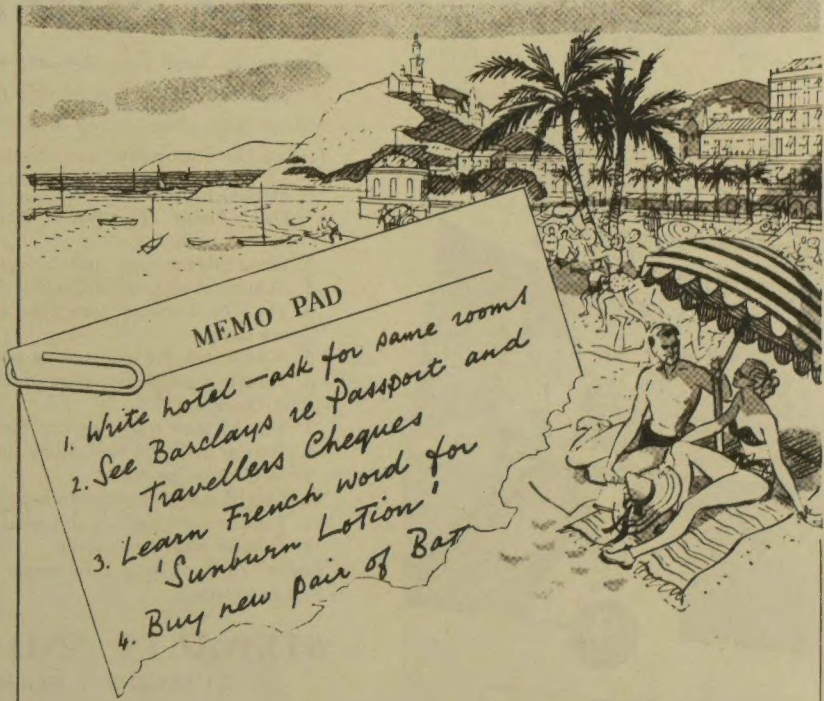 MEMO PAD
1. Write hotel — ask for same rooms
2. See Barclays re Passport and
Travellers Cheques
3. Learn French word for
'Sunburn Lotion'
4. Buy new pair of Bat